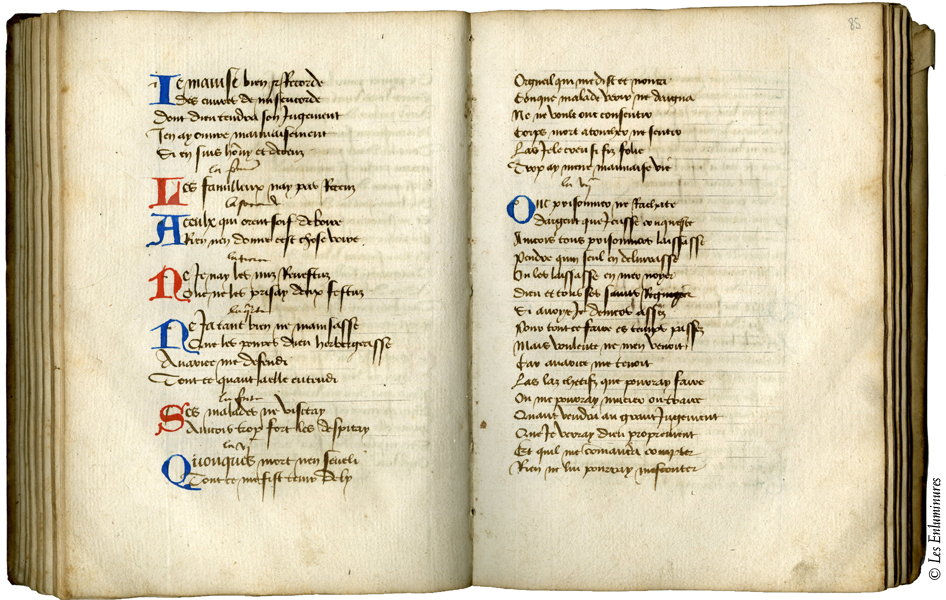 Ie mavise bien & Recorde
Des euvres de misericorde
Dont dieu tendra son Jugement
Jen ay ouvre mauvaisement
Si en suis honny et deceuz
Les familleux nay pas Receuz
La seconde
A ceulx qui orent soif de boire
Rien nen donne cest chose voire
La tierce
Ne Je nay les nuz Revestuz
Que ne les prisay deux festuz
La quarte
Ne Ja tant bien ne mansasse
Que les povres dieu herbergeasse
Avarice me defendi
Tout ce quant a elle entendi
La quinte
Ses malades ne visitay
Aincois trop fort les despitay
La vj
Quonques mort nen seveli
Tout ce me fist
85
Orgueil qui me dist et
Conque malade veoir ne daigna
Ne ne voult onc consentir
Corps mort atoucher ne sentir
Las Je le creu si fiz folie
Trop ay mene mauvaise vie
La vij
Onc prisonnier ne Rachate
Dargent que Jeusse conqueste
Aincois tous prisonniers laissasse
Pendre quun seul en delivrasse
Ou les laissasse en mer noyer
Dieu et tous ses sains
Si avoye Je deniers assez
Pour tout ce faire es temps passez
Mais voulente ne men venoit
Car avarice me tenoit
Las laz chetif que pourray faire
Ou me pourray mucier ou traire
Quant vendra au grant Jugement
Que Je verray dieu proprement
Et quil me comanda compter
Rien ne lui pourray mesconter
© Les Enluminures